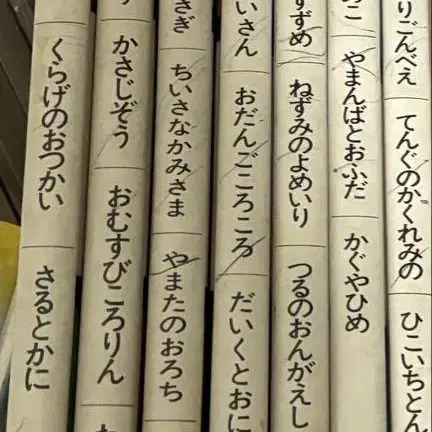 りごんべえ
てんぐのかくれみの
ひこいちとん
こ
やまんばとおふだ
かぐやひめ
すずめ
ねずみのよめいり
つるのおんがえし
いさん
おだんごころころ
だいくとおに
さぎ
ちいさなかみさま
やまたのおろち
かさじぞう
おむすびころりん
くらげのおつかい
さるとかに